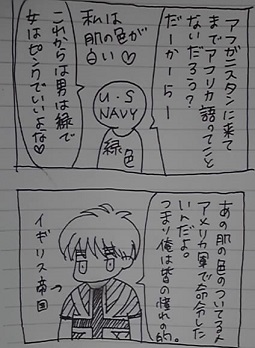 アフガニスタンに来て
までアフリカ語ってこと
ないだろう?
だーかーらー
私は
肌の色が
白い♡
U・S
NAVY
緑
色
これからは男は緑で
女はピンクでいいよな♡
あの肌の色のついてる人
アメリカ軍で命令した
いんだよ。
つまり俺は皆の憧れの的。
イギリス帝国